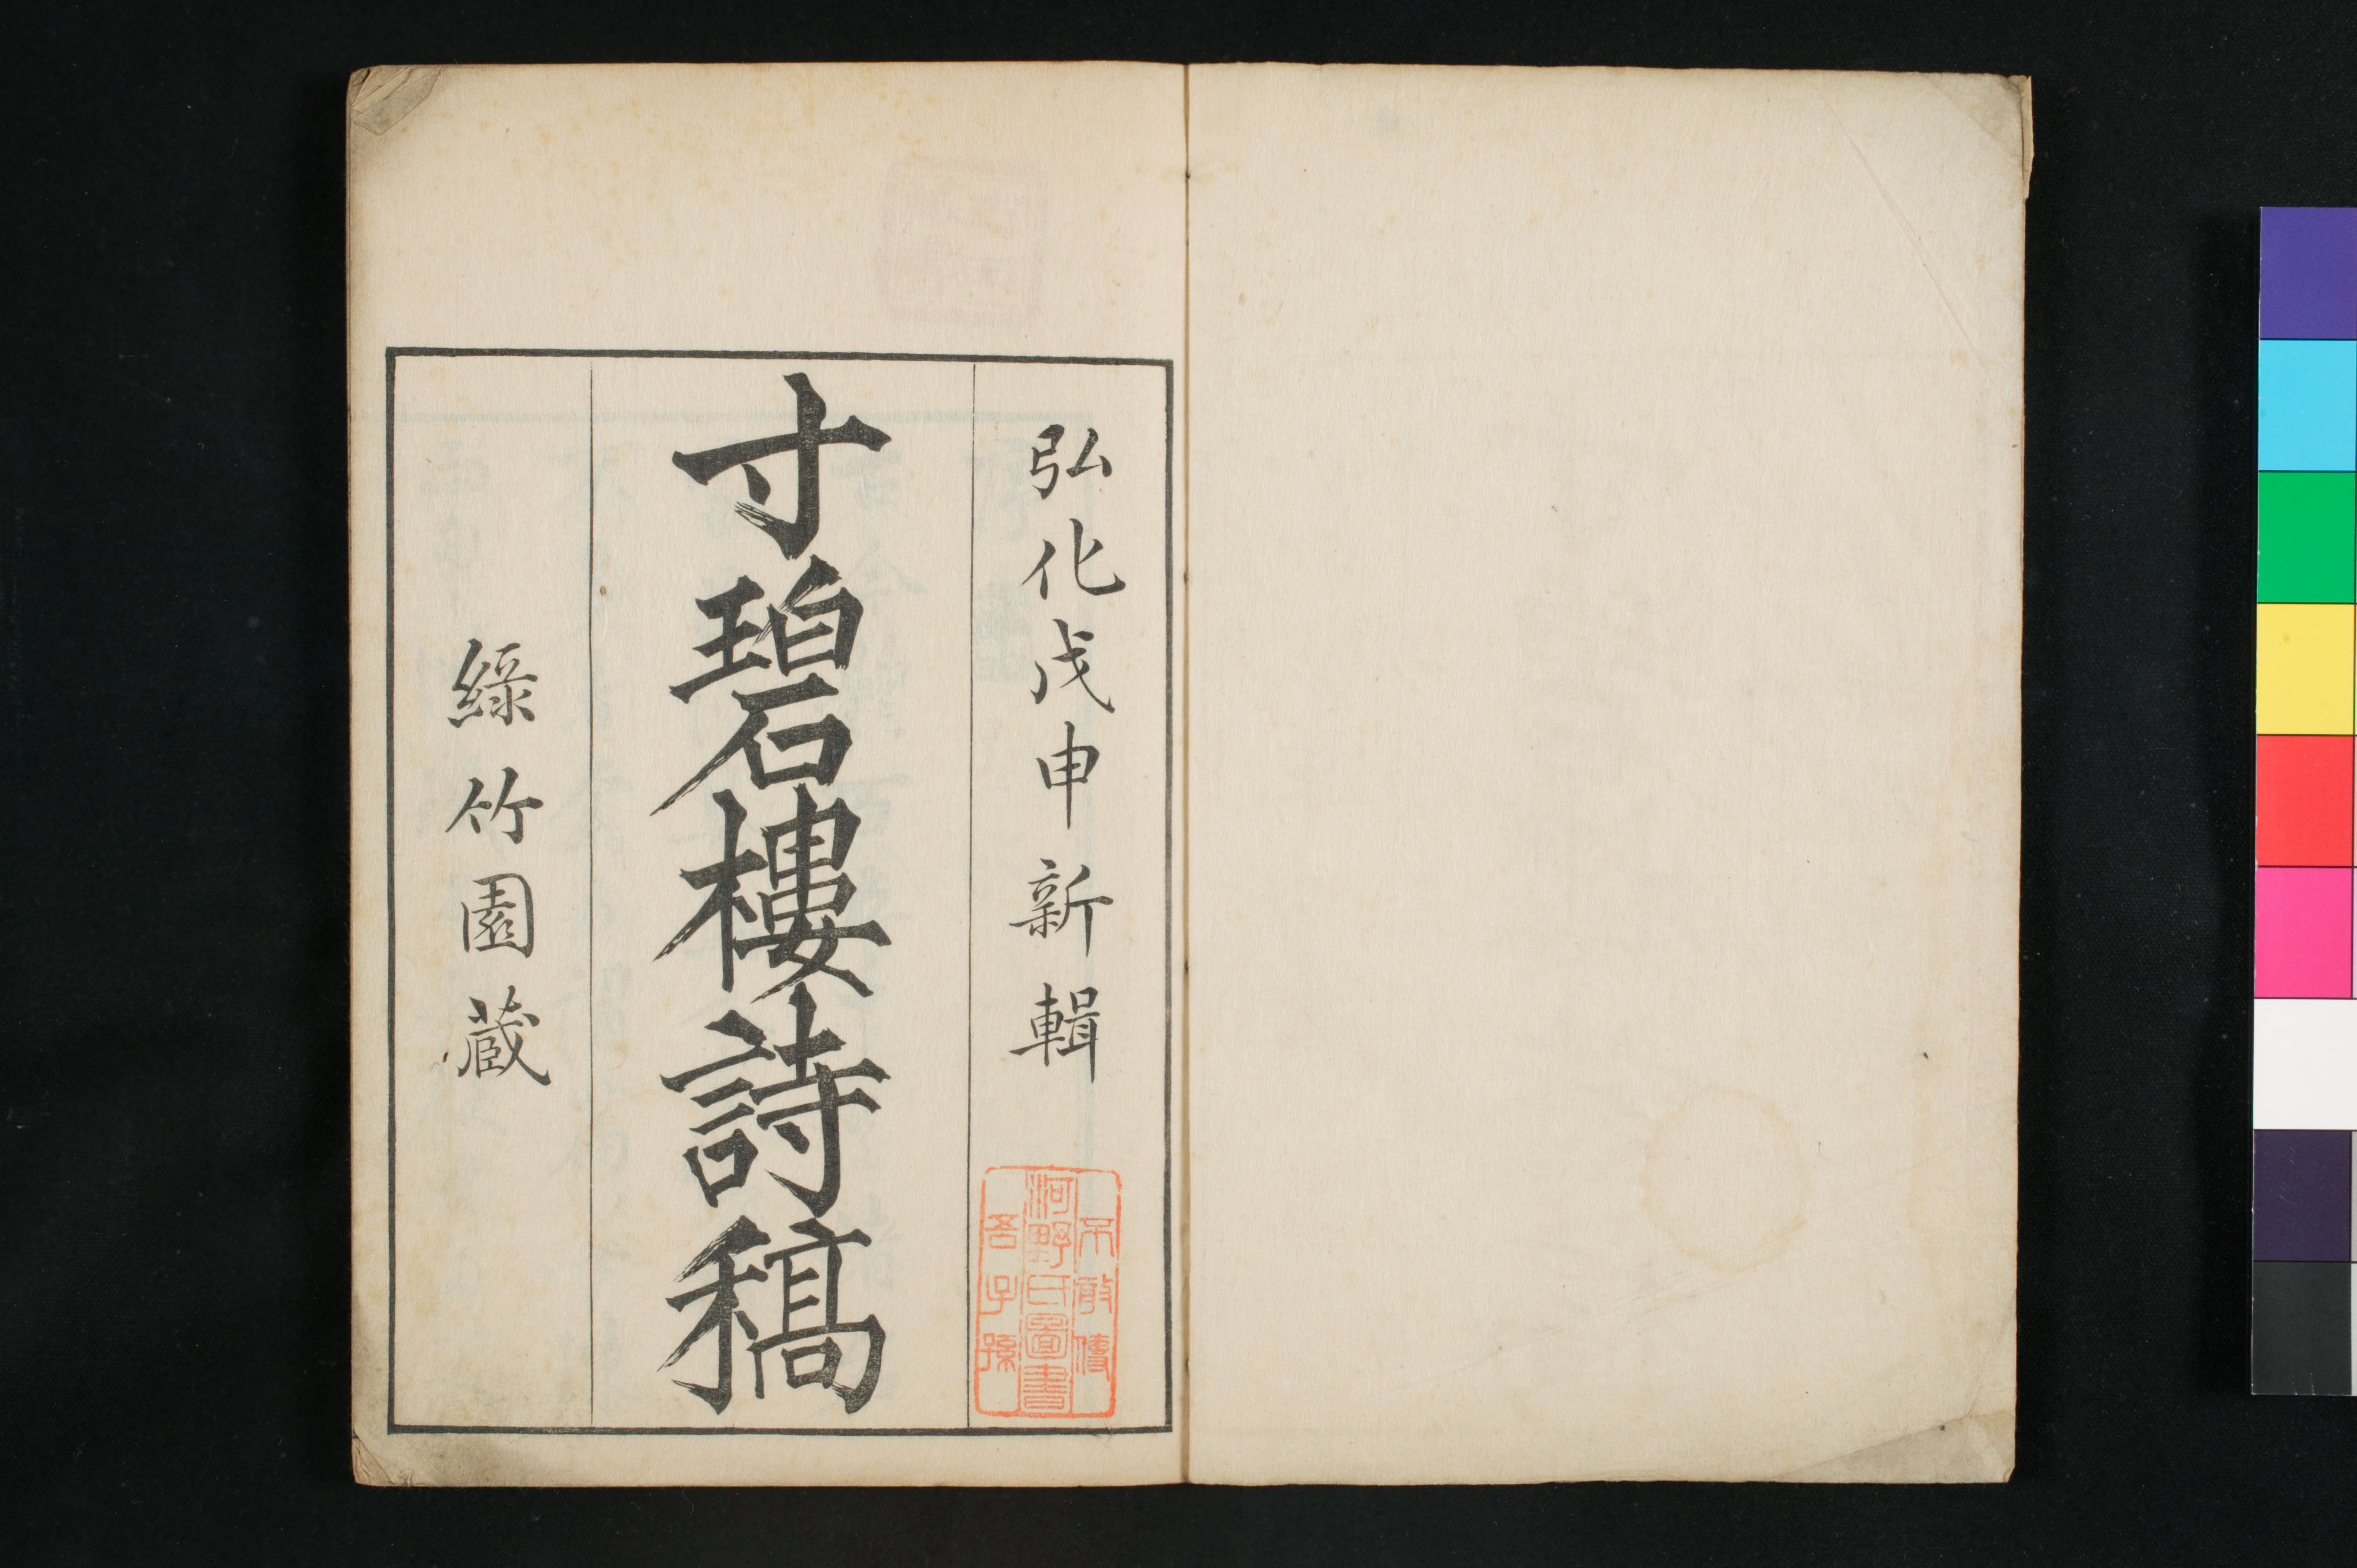 弘化戊申新輯
不敢傳
河野氏圖書
吾子孫
寸碧樓詩稿
綠竹園藏